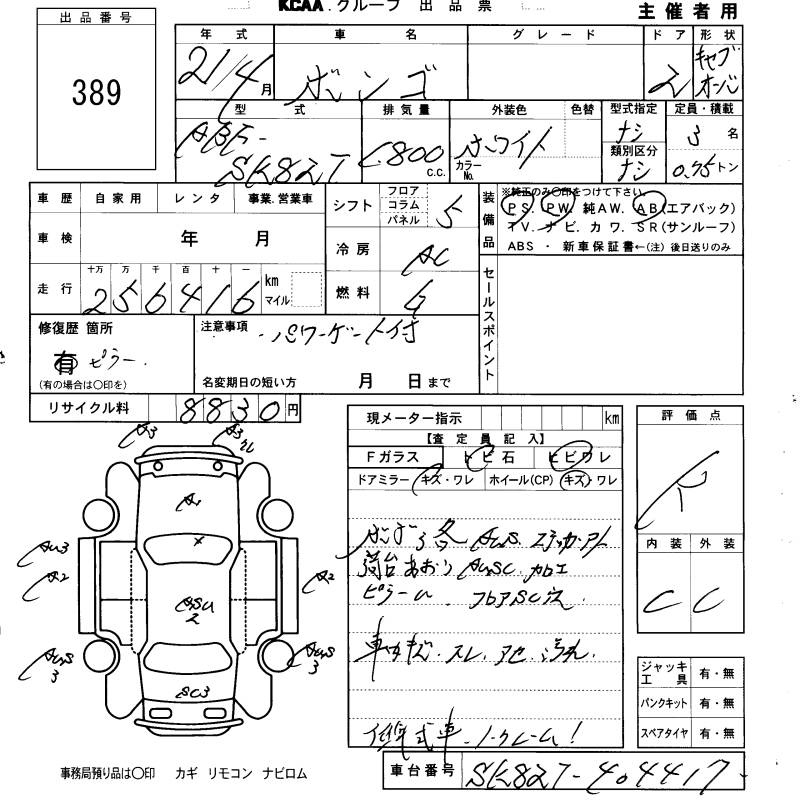 KCAA.グループ 出品票
主催者用
出品番号
389
年式 車名 グレード ドア 形状
21/4月 ボンゴ 2 キャブオーバ
型式 排気量 外装色 色替 型式指定 定員・積載
ABF-SK82T 1,800 C.C. ホワイト カラーNo. ナシ 3名
類別区分 ナシ 0.75トン
車歴 自家用 レンタ 事業.営業車
シフト フロア コラム パネル 5
装備品 ※純正のみ○印をつけて下さい
PS. PW. 純AW. AB(エアバック)
TV. ナビ. カワ. SR(サンルーフ)
ABS ・ 新車保証書←(注)後日送りのみ
車検 年 月
冷房 AC
走行 十万 万 千 百 十 一 km マイル
256416
燃料 G
セールスポイント
修復歴 箇所
有 ピラー.
(有の場合は○印を)
注意事項 パワーゲート付
名変期日の短い方 月 日まで
リサイクル料 8830円
現メーター指示 km
【査定員記入】
Fガラス トビ石 ヒビワレ
ドアミラー キズ・ワレ ホイール(CP) キズ・ワレ
評価点
R
内装 外装
C C
A3 A3ワレ
A1
AU3
A2
ASU2
A2
AUS3
AUS3
SC3
ボディ各AUS. ステッカーアト
荷台あおりAUSC. カロエ
ピラーU. フロアSC穴
車内キズ. スレ. アセ. 汚れ.
低年式車. ノークレーム!
ジャッキ工具 有・無
パンクキット 有・無
スペアタイヤ 有・無
事務局預り品は○印 カギ リモコン ナビロム
車台番号 SK82T-404417